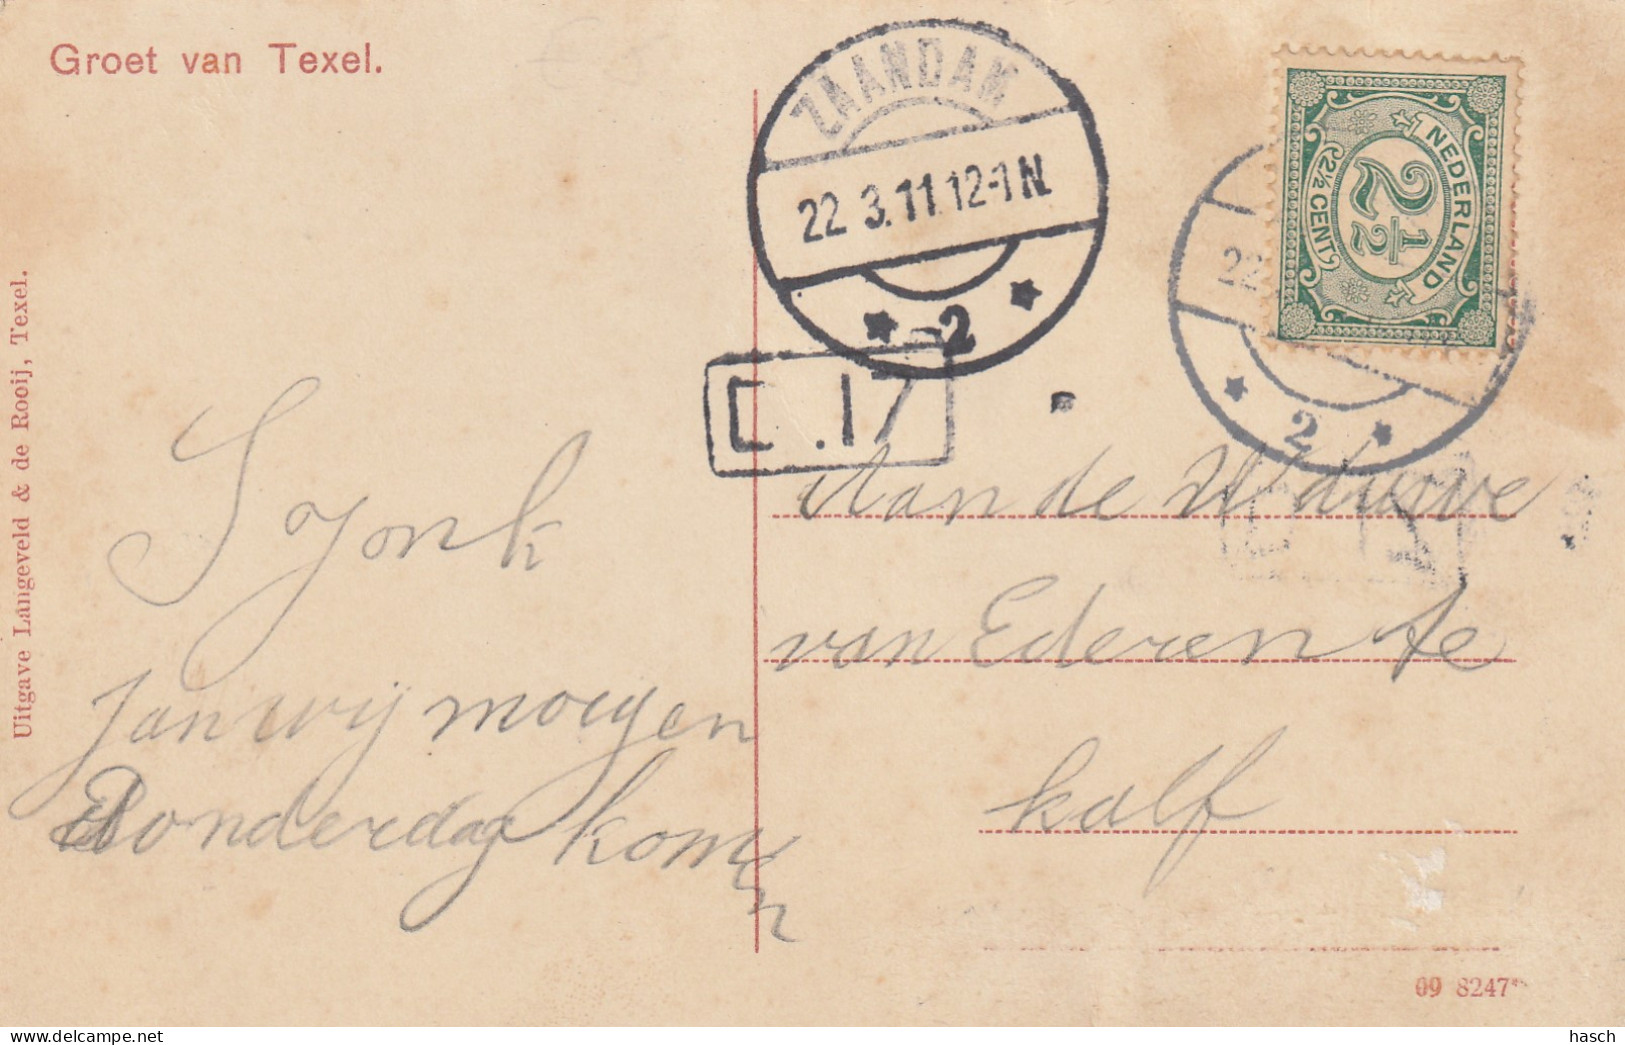 Groet van Texel.
ZAANDAM
22 3.11.12-1 N
2
NEDERLAND
2½
2½ CENT
22
2
C.17
Uitgave Langeveld & de Rooij, Texel.
Aan de Weduwe
van Ederen te
kalf
Jan wij morgen
Donderdag komen
09 8247
hasch